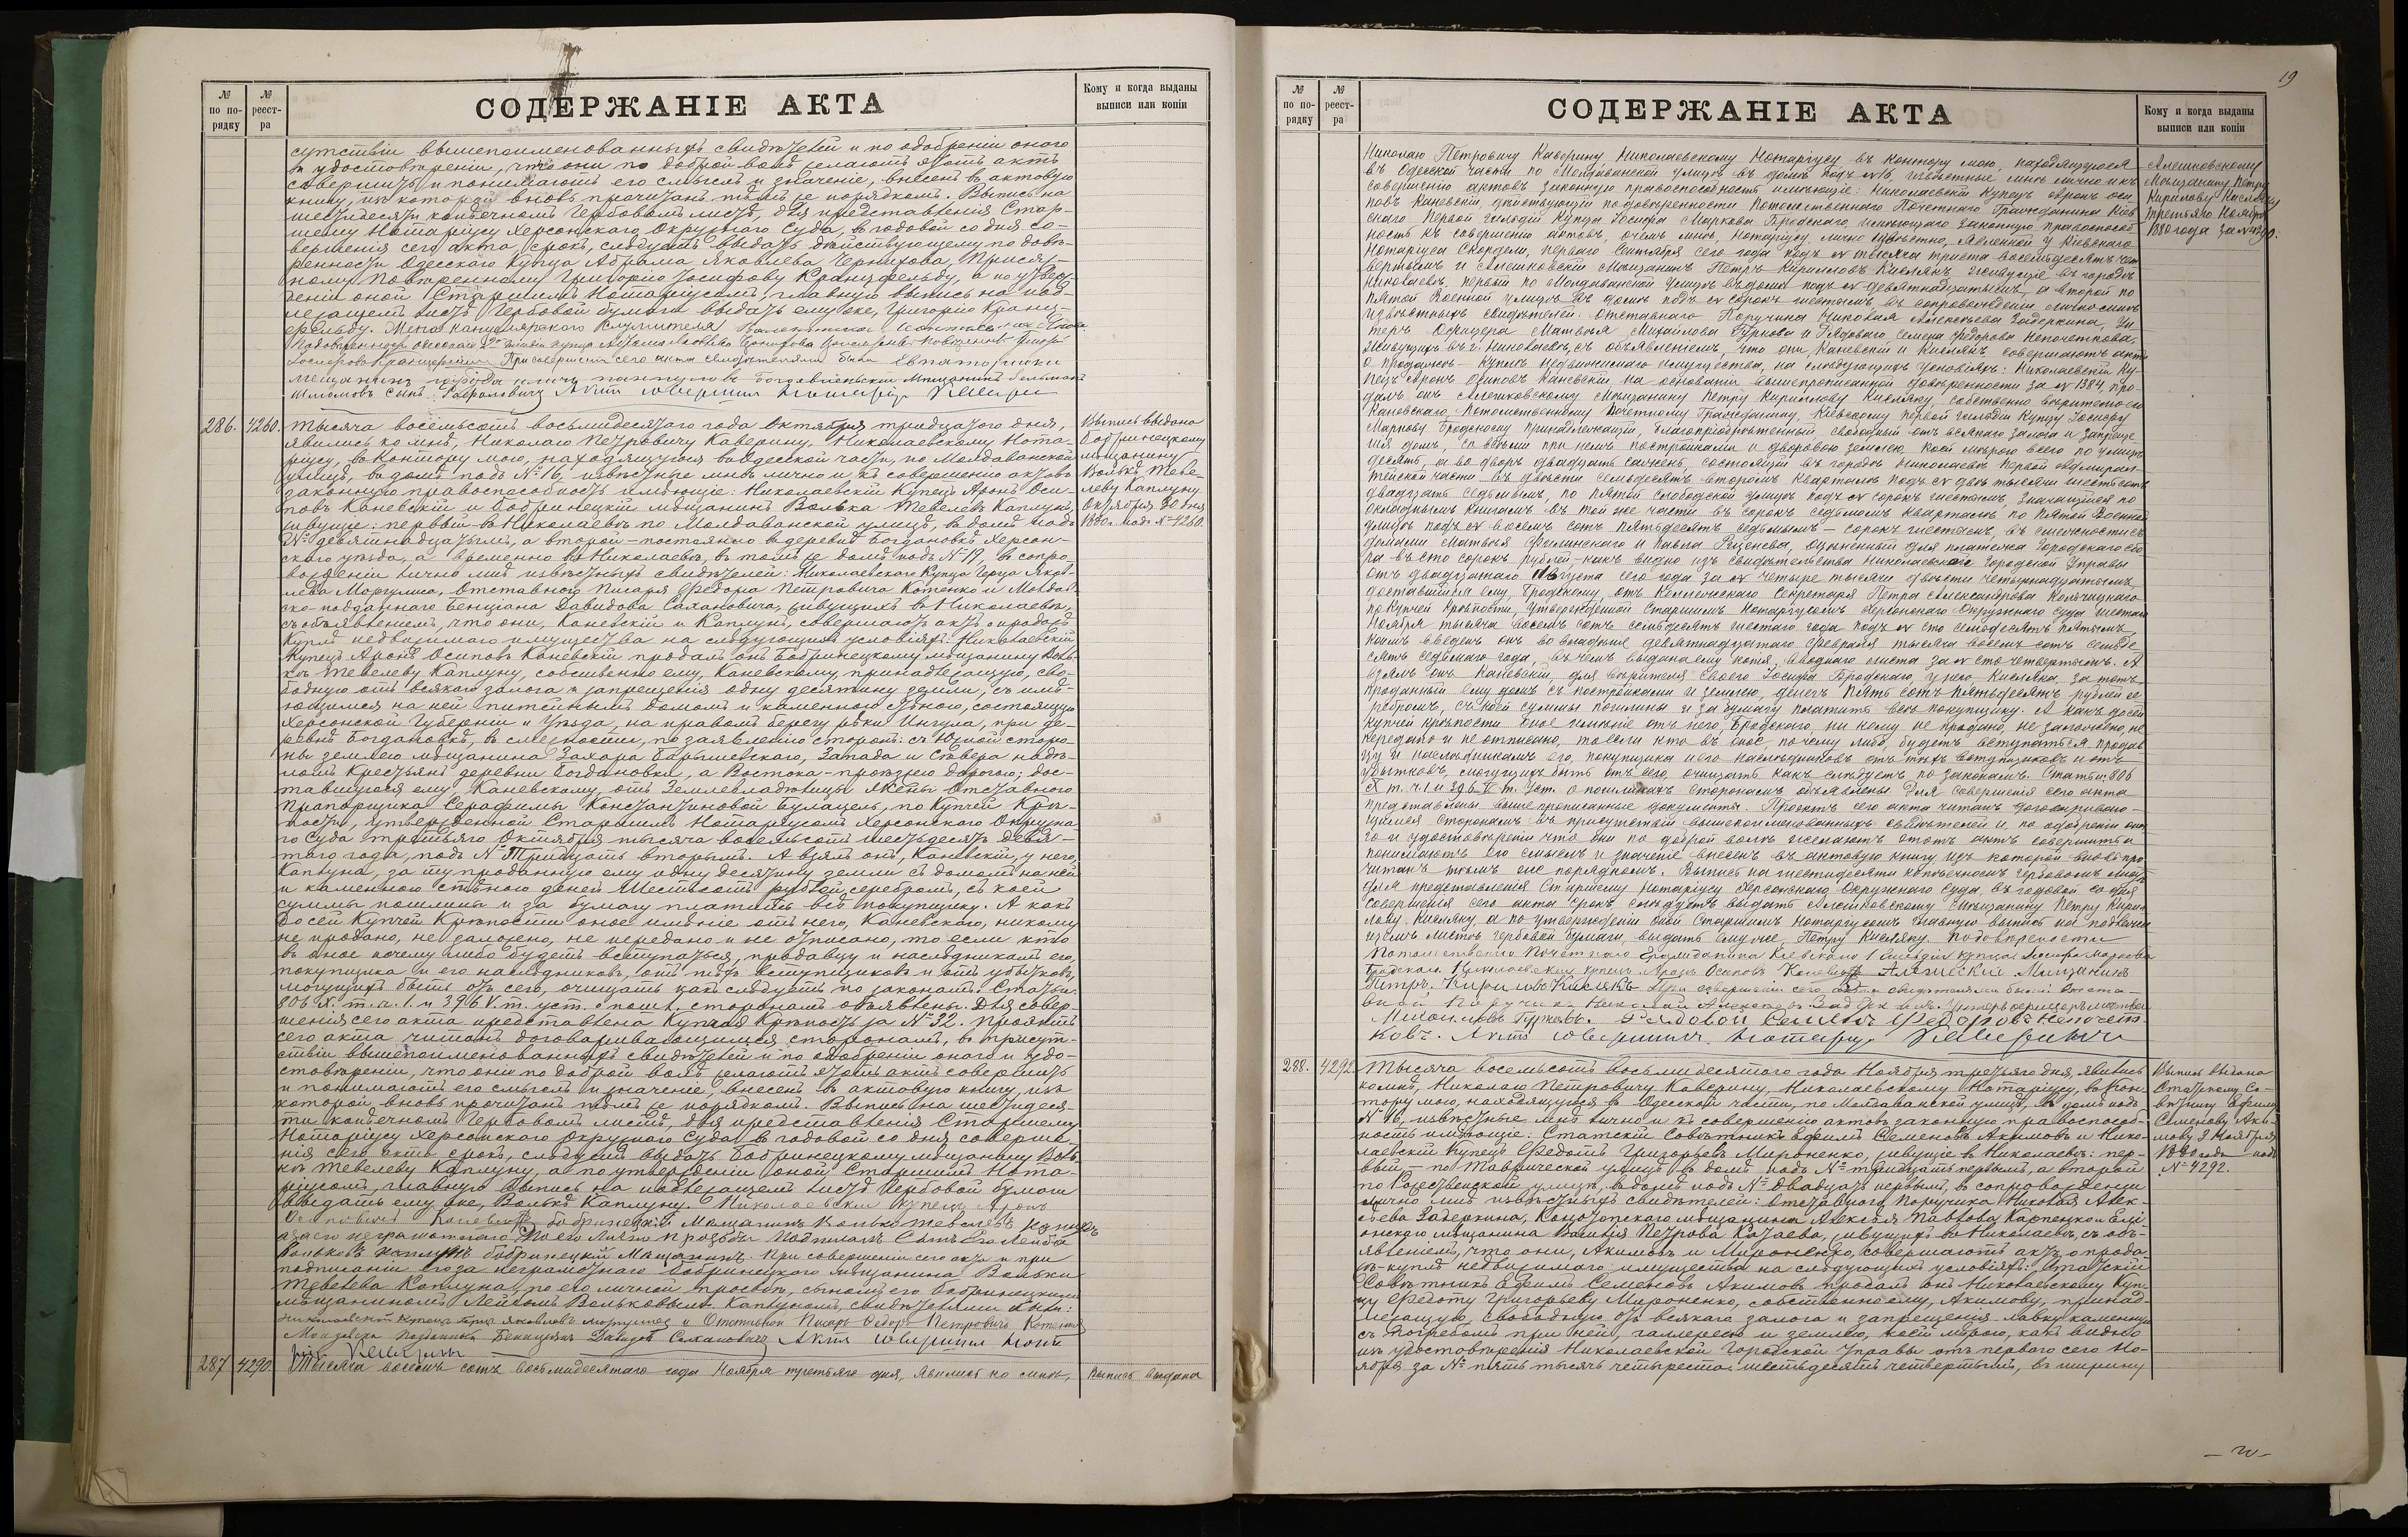 № по по-рядку
№ реест-ра
СОДЕРЖАНІЕ АКТА
Кому и когда выданы выписи или копіи
сутствіи вышепоименованныхъ свидѣтелей и по одобреніи онаго
и удостовѣреніи, что они по доброй волѣ желаютъ этотъ актъ
совершить и понимаютъ его смыслъ и значеніе, внесенъ въ актовую
книгу, изъ которой вновь прочитанъ тѣмъ же порядкомъ. Выпись на
шестидесяти копѣечномъ гербовомъ листѣ, для представленія Стар-
шему Нотаріусу Херсонскаго Окружнаго Суда, въ годовой со дня со-
вершенія сего акта срокъ, слѣдуетъ выдать дѣйствующему по довѣ-
ренности Одесскаго Купца Абрама Яковлева Чернихова, Присяж-
ному Повѣренному Григорію Іосифову
деніи оной Старшимъ Нотаріусомъ, главную выпись на под-
лежащемъ листѣ гербовой бумаги выдать ему же, Григорію
Акт совершилъ Нотаріусъ Каверинъ
286. 4260. Тысяча восемьсотъ восьмидесятаго года Октября тридцатаго дня,
явились ко мнѣ, Николаю Петровичу Каверину, Николаевскому Нота-
ріусу, въ контору мою, находящуюся въ Одесской части, по Молдаванской
улицѣ, въ домѣ подъ № 16, извѣстные мнѣ лично и къ совершенію актовъ
законную правоспособность имѣющіе: Николаевскій Купецъ Аронъ Оси-
повъ Каневскій и Бобринецкій мѣщанинъ Волька Тевелевъ Каплунъ,
живущіе: первый въ Николаевѣ по Молдаванской улицѣ, въ домѣ подъ
№ девятнадцатымъ, а второй - постоянно въ деревнѣ Богдановкѣ Херсон-
скаго уѣзда, а временно въ Николаевѣ, въ томъ же домѣ подъ № 19, въ сопро-
вожденіи лично мнѣ извѣстныхъ свидѣтелей: Николаевскаго Купца Герца Яков-
лева Моргулиса, Отставнаго Писаря Федора Петровича Котенко и Молдав-
ско-подданнаго Бенціана Давидова Сахановича, живущихъ въ Николаевѣ,
съ объявленіемъ, что они, Каневскій и Каплунъ, совершаютъ актъ о продажѣ
куплѣ недвижимаго имущества на слѣдующихъ условіяхъ: Николаевскій
Купецъ Аронъ Осиповъ Каневскій продалъ онъ Бобринецкому мѣщанину Воль-
кѣ Тевелеву Каплуну, собственно ему, Каневскому, принадлежащую, сво-
бодную отъ всякаго залога и запрещенія одну десятину земли, съ имѣ-
ющимся на ней питейнымъ домомъ и каменною стѣною, состоящую
Херсонской Губерніи и Уѣзда, на правомъ берегу рѣки Ингула, при де-
ревнѣ Богдановкѣ, въ смежности, по заявленію сторонъ: съ Южной сторо-
ны землею мѣщанина Захара Барышевскаго, Запада и Сѣвера надѣ-
ломъ Крестьянъ деревни Богдановки, а Востока - проѣзжею дорогою; дос-
тавшуюся ему, Каневскому, отъ Землевладѣлицы Жены Отставнаго
Прапорщика Серафимы Константиновой Булацель, по Купчей Крѣ-
пости, утвержденной Старшимъ Нотаріусомъ Херсонскаго Окружна-
го Суда третьяго Октября тысяча восемьсотъ шестьдесятъ девя-
таго года, подъ № Тридцать вторымъ. А взялъ онъ, Каневскій, у него,
Каплуна, за ту проданную ему одну десятину земли съ домомъ на ней
и каменною стѣною денегъ Шестьсотъ рублей серебромъ, съ коей
суммы пошлины и за бумагу платить всѣ покупщику. А какъ
до сей Купчей Крѣпости оное имѣніе отъ него, Каневскаго, никому
не продано, не заложено, не передано и не отписано, то если кто
въ оное почему либо будетъ вступаться, продавцу и наслѣдникамъ его,
покупщика и его наслѣдниковъ, отъ тѣхъ вступщиковъ и отъ убытковъ,
могущихъ быть отъ сего, очищать какъ слѣдуетъ по законамъ. Статьи:
806 X. т. ч. 1. и 396 V. т. уст. о пошл. сторонамъ объявлены. Для совер-
шенія сего акта представлена Купчая Крѣпость за № 32. Проэктъ
сего акта читанъ договаривающимся сторонамъ, въ присут-
ствіи вышепоименованныхъ свидѣтелей и по одобреніи онаго и удо-
стовѣреніи, что они по доброй волѣ желаютъ этотъ актъ совершить
и понимаютъ его смыслъ и значеніе, внесенъ въ актовую книгу, изъ
которой вновь прочитанъ тѣмъ же порядкомъ. Выпись на шестидеся-
ти копѣечномъ Гербовомъ листѣ, для представленія Старшему
Нотаріусу Херсонскаго Окружнаго Суда въ годовой со дня соверше-
нія сего акта срокъ, слѣдуетъ выдать Бобринецкому мѣщанину Воль-
кѣ Тевелеву Каплуну, а по утвержденіи оной Старшимъ Нота-
ріусомъ, главную выпись на подлежащемъ листѣ Гербовой бумаги
выдать ему же, Волькѣ Каплуну. Николаевскій купецъ Аронъ
Осиповъ Каневскій Бобринецкій Мѣщанинъ Волько Тевелевъ Каплунъ
а за его неграмотнаго по его личной просьбѣ подписалъ Сынъ его Лейба
Вольковъ Каплунъ бобринецкій Мѣщанинъ. При совершеніи сего акта и при
подписаніи его за неграмотнаго Бобринецкаго мѣщанина Вольки
Тевелева Каплуна, по его личной просьбѣ, сыномъ его Бобринецкимъ
мѣщаниномъ Лейбомъ Вольковымъ Каплуномъ, свидѣтелями были:
Николаевскій Купецъ Герцъ Яковлевъ Моргулисъ и Отставной Писарь Федоръ Петровичъ Котенко
Молдавско Подданный Бенціанъ Давидовъ Сахановичъ Актъ совершилъ Нота-
ріусъ Каверинъ
Выпись выдана
Бобринецкому
мѣщанину
Волькѣ Теве-
леву Каплуну
Октября 30 дня
1880 г. подъ № 4260.
287. 4290. Тысяча восемь сотъ восьмидесятаго года Ноября третьяго дня, явились ко мнѣ,
Выпись выдана
19
№ по по-рядку
№ реест-ра
СОДЕРЖАНІЕ АКТА
Кому и когда выданы выписи или копіи
Николаю Петровичу Каверину, Николаевскому Нотаріусу въ контору мою, находящуюся
въ Одесской части по Молдаванской улицѣ въ домѣ подъ № 16, извѣстные мнѣ лично и къ
совершенію актовъ законную правоспособность имѣющіе: Николаевскій Купецъ Аронъ Оси-
повъ Каневскій, дѣйствующій по довѣренности Потомственнаго Почетнаго Гражданина Кіев-
скаго Первой гильдіи Купца Іосифа Маркова Бродскаго, имѣющаго законную правоспособ-
ность къ совершенію актовъ, о чемъ мнѣ, Нотаріусу, лично извѣстно, явленной у Кіевскаго
Нотаріуса Скордели, перваго Сентября сего года подъ № тысяча триста восемьдесятъ чет-
вертымъ и Алешковскій Мѣщанинъ Петръ Кирилловъ Кислякъ живущіе въ городѣ
Николаевѣ, первый по Молдаванской улицѣ въ домѣ подъ № девятнадцатымъ, а второй по
пятой Военной улицѣ въ домѣ подъ № сорокъ шестымъ, въ сопровожденіи лично мнѣ
извѣстныхъ свидѣтелей: Отставнаго Поручика Николая Алексѣева Задеркина, Ун-
теръ Офицера Матвѣя Михайлова Гуркова и Рядоваго Семена Федорова Непочеткова,
живущихъ въ г. Николаевѣ, съ объявленіемъ, что они, Каневскій и Кислякъ совершаютъ актъ
о продажѣ - куплѣ недвижимаго имущества, на слѣдующихъ условіяхъ: Николаевскій Ку-
пецъ Аронъ Осиповъ Каневскій, на основаніи вышепрописанной довѣренности за № 1384, про-
далъ онъ Алешковскому Мѣщанину Петру Кириллову Кисляку, собственно вѣрителю его
Каневскаго, Потомственному Почетному Гражданину, Кіевскому первой гильдіи Купцу Іосифу
Маркову Бродскому принадлежащій, благопріобрѣтенный, свободный отъ всякаго залога и запреще-
нія домъ, со всѣми при немъ постройками и дворовою землею, коей мѣрою всего по улицѣ
десять, а во дворъ двадцать саженъ, состоящій въ городѣ Николаевѣ Первой Адмирал-
тейской части въ двѣсти семьдесятъ второмъ кварталѣ подъ № двѣ тысячи шестьсотъ
двадцать седьмымъ, по Пятой Слободской улицѣ подъ № сорокъ шестымъ, значащійся по
окладнымъ книгамъ въ той же части въ сорокъ седьмомъ кварталѣ по Пятой Военной
улицѣ подъ № восемь сотъ пятьдесятъ седьмымъ - сорокъ шестымъ, въ смежности съ
домами Матвѣя Фелинскаго и Павла Рищенева, оцѣненный для платежа Городскаго сбо-
ра въ сто сорокъ рублей - какъ видно изъ свидѣтельства Николаевской Городской Управы
отъ двадцатаго Августа сего года за № четыре тысячи двѣсти четырнадцатымъ,
доставшійся ему, Бродскому, отъ Коллежскаго Секретаря Петра Александрова Колчицкаго
по купчей крѣпости, утвержденной Старшимъ Нотаріусомъ Херсонскаго Окружнаго Суда шестаго
Ноября тысяча восемь сотъ семьдесятъ шестаго года подъ № сто семьдесятъ пятымъ
коимъ введенъ онъ во владѣніе девятнадцатаго Февраля тысяча восемь сотъ семьде-
сятъ седьмаго года, въ чемъ выдана ему копія, вводнаго листа за № сто четвертымъ. А
взялъ онъ Каневскій, для вѣрителя своего Іосифа Бродскаго, у него Кисляка, за тотъ
проданный ему домъ съ постройками и землею, денегъ пять сотъ пятьдесятъ рублей се-
ребромъ, съ коей суммы пошлины и за бумагу платить всѣ покупщику. А какъ до сей
купчей крѣпости оное имѣніе отъ него, Бродскаго, ни кому не продано, не заложено, не
передано и не отписано, то если кто въ оное, почему либо, будетъ вступаться, продав-
цу и наслѣдникамъ его, покупщика и его наслѣдниковъ отъ тѣхъ вступщиковъ и отъ
убытковъ, могущихъ быть отъ сего, очищать какъ слѣдуетъ по законамъ. Статьи: 806
X т. ч. 1 и 396 V т. Уст. о пошлинахъ сторонамъ объявлены. Для совершенія сего акта
представлены вышепрописанные документы. Проэктъ сего акта читанъ договариваю-
щимся сторонамъ въ присутствіи вышепоименованныхъ свидѣтелей и, по одобреніи она-
го и удостовѣреніи что они по доброй волѣ желаютъ этотъ актъ совершить и
понимаютъ его смыслъ и значеніе внесенъ въ актовую книгу изъ которой вновь про-
читанъ тѣмъ же порядкомъ. Выпись на шестидесяти копѣечномъ гербовомъ листѣ
для представленія Старшему Нотаріусу Херсонскаго Окружнаго Суда, въ годовой со дня
совершенія сего акта срокъ слѣдуетъ выдать Алешковскому Мѣщанину Петру Кирил-
лову Кисляку а по утвержденіи оной Старшимъ Нотаріусомъ главную выпись на подлежа-
щемъ листѣ гербовой бумаги, выдать ему же, Петру Кисляку. По довѣренности
Потомственнаго Почетнаго Гражданина Кіевскаго 1 гильдіи купца Іосифа Маркова
Бродскаго Николаевскій купецъ Аронъ Осиповъ Каневскій Алешскій Мещанинъ
Петръ Кириловъ Кислякъ При совершеніи сего акта свидѣтелями были: Отста-
вной Поручикъ Николай Алексѣевъ Задеркинъ. Унтеръ офицеръ Матвей
Михайловъ Гурковъ. Рядовой Семенъ Федоровъ Непочет-
ковъ. Актъ совершилъ Нотаріусъ Каверинъ
Алешковскому
Мѣщанину Петру
Кириллову Кисляку
третьяго Ноября
1880 года за № 4290.
288. 4292. Тысяча восемьсотъ восьмидесятаго года Ноября третьяго дня, явились
ко мнѣ, Николаю Петровичу Каверину, Николаевскому Нотаріусу, въ кон-
тору мою, находящуюся въ Одесской части, по Молдаванской улицѣ, въ домѣ подъ
№ 16, извѣстные мнѣ лично и къ совершенію актовъ законную правоспособ-
ность имѣющіе: Статскій Совѣтникъ Ефимъ Семеновъ Акимовъ и Нико-
лаевскій Купецъ Федотъ Григорьевъ Мироненко, живущіе въ Николаевѣ: пер-
вый - по Таврической улицѣ въ домѣ подъ № тридцать первымъ, а второй
по Рождественской улицѣ, въ домѣ подъ № двадцать первымъ, въ сопровожденіи
лично мнѣ извѣстныхъ свидѣтелей: Отставнаго Поручика Николая Алек-
сѣева Задеркина, Конотопскаго мѣщанина Алексѣя Павлова Карпенко и Елі-
онскаго мѣщанина Василія Петрова Катаева, живущихъ въ Николаевѣ, съ объ-
явленіемъ, что они, Акимовъ и Мироненко, совершаютъ актъ о прода-
жѣ-куплѣ недвижимаго имущества на слѣдующихъ условіяхъ: Статскій
Совѣтникъ Ефимъ Семеновъ Акимовъ продалъ онъ Николаевскому Куп-
цу Федоту Григорьеву Мироненко, собственно ему, Акимову, принад-
лежащую, свободную отъ всякаго залога и запрещенія лавку каменную
съ погребомъ при ней, галлереею и землею, коей мѣрою, какъ видно
изъ удостовѣренія Николаевской Городской Управы отъ перваго сего Но-
ября за № пять тысячъ четыреста шестьдесятъ четвертымъ, въ ширину
Выпись выдана
Статскому Со-
вѣтнику Ефиму
Семенову Аки-
мову 3 Ноября
1880 года подъ
№ 4292.